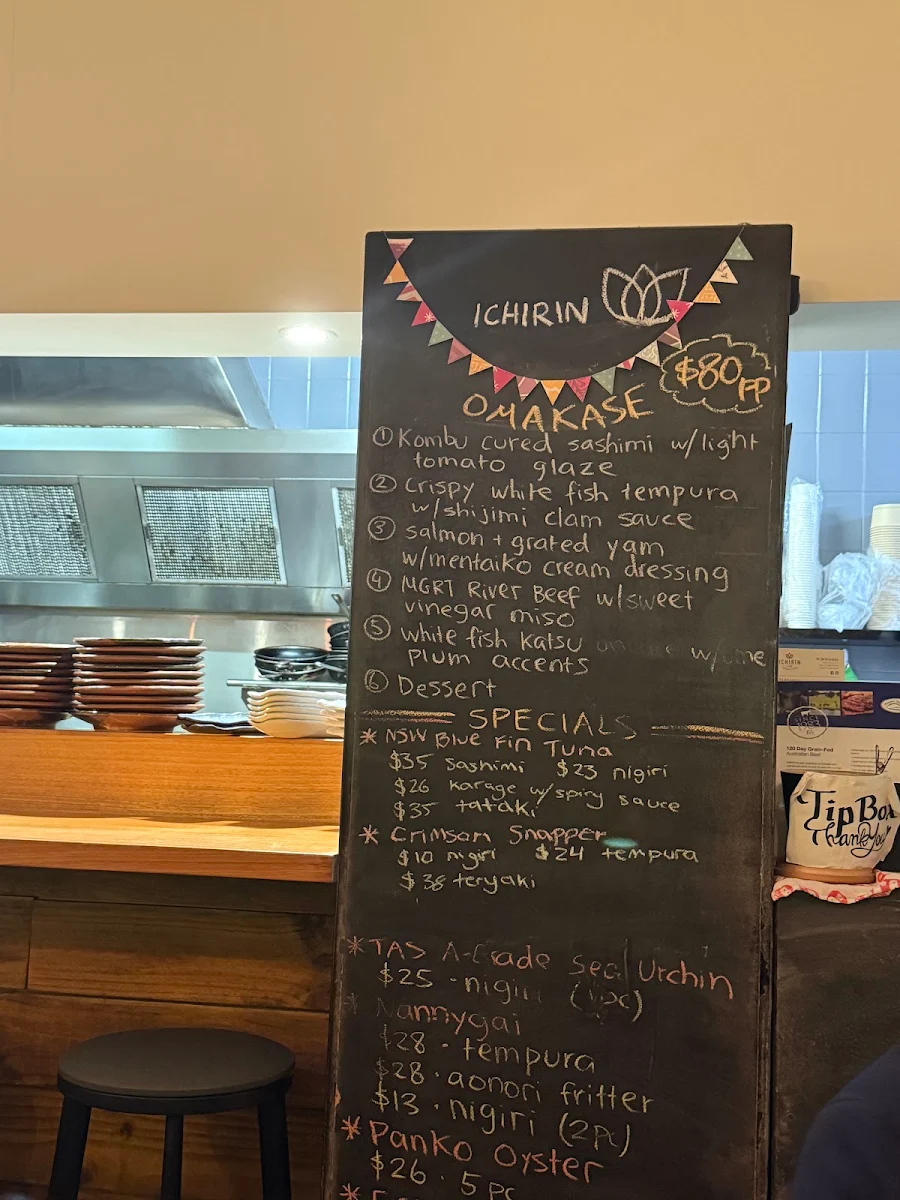 ICHIRIN
$80 PP
OMAKASE
① Kombu cured sashimi w/light
tomato glaze
② Crispy white fish tempura
w/shijimi clam sauce
③ salmon + grated yam
w/mentaiko cream dressing
④ MGRT River Beef w/sweet
vinegar miso
⑤ white fish Katsu
plum accents
⑥ Dessert
SPECIALS
* NSW Blue Fin Tuna
$35 sashimi $23 nigiri
$26 Karage w/spicy sauce
$35 tataki
* Crimson Snapper
$10 nigiri $24 tempura
$38 teryaki
* TAS A-Grade Sea Urchin
$25 · nigiri (1pc)
* Nannygai
$28 · tempura
$28 · aonori fritter
$13 · nigiri (2pc)
* Panko Oyster
$26 · 5 pc
ICHIRIN
120 Day Grain-Fed
Australian Beef
Tip Box
Thank You